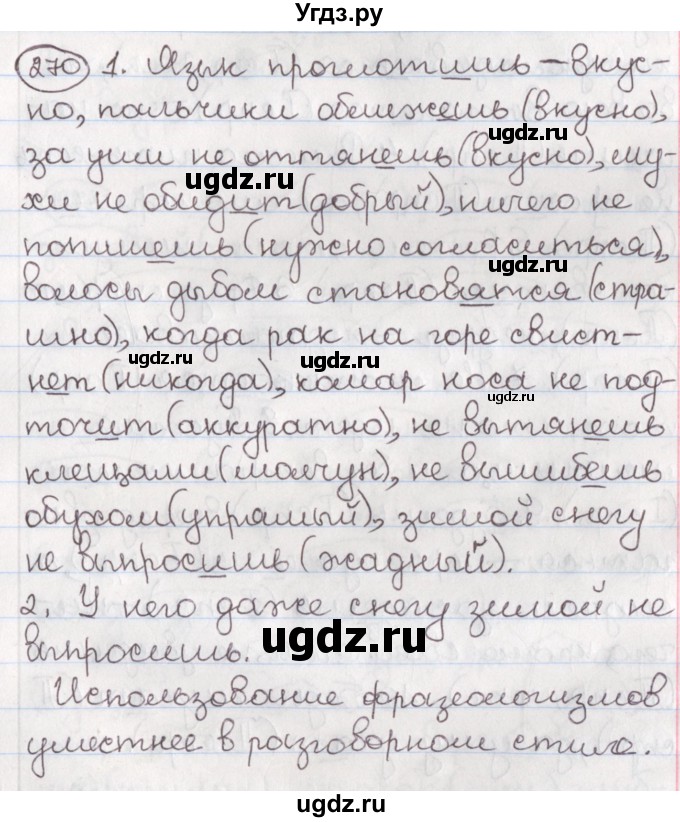 Угдз.ру
270 1. Язык проглотишь – вкус-
но, пальчики оближешь (вкусно),
за уши не оттянешь (вкусно), му-
хи не обидит (добрый), ничего не
попишешь (нужно согласиться),
волосы дыбом становятся (стра-
шно), когда рак на горе свист-
нет (никогда), комар носа не под-
точит (аккуратно), не вытянешь
клещами (молчун), не вышибешь
обухом (упрямый), зимой снегу
не выпросишь (жадный).
2. У него даже снегу зимой не
выпросишь.
Использование фразеологизмов
уместнее в разговорном стиле.
ugdz.ru
ugdz.ru
ugdz.ru
ugdz.ru
ugdz.ru
ugdz.ru
ugdz.ru
ugdz.ru
ugdz.ru
ugdz.ru